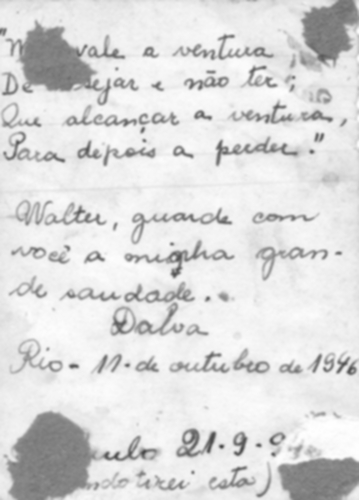 vale a ventura
De sejar e não ter;
Que alcançar a ventura,
Para depois a perder."
Walter, guarde com
você a minha gran-
de saudade.
Dalva
Rio - 11 - de outubro de 1946
ulo 21-9-9
ndo tirei esta)